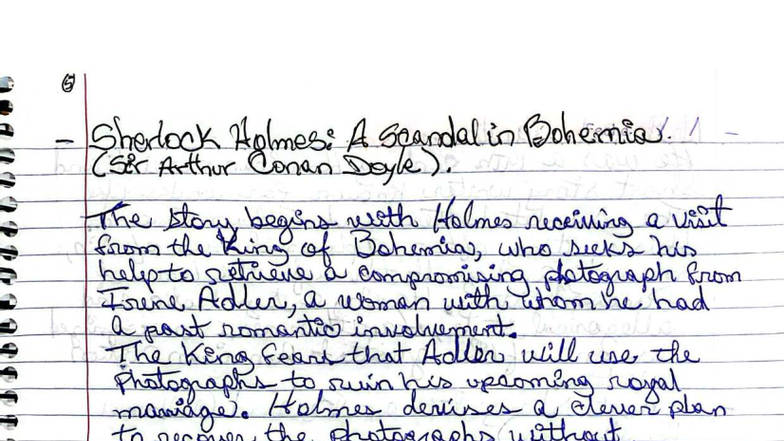 ⑤
- Sherlock Holmes: A Scandal in Bohemia. -
(Sir Arthur Conan Doyle).
The story begins with Holmes receiving a visit
from the King of Bohemia, who seeks his
help to retrieve a compromising photograph from
Irene Adler, a woman with whom he had
a past romantic involvement.
The King fears that Adler will use the
photographs to ruin his upcoming royal
marriage. Holmes devises a clever plan
to recover the photographs without